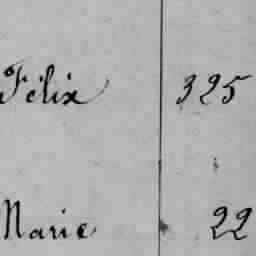 Félix 325
Marie 22